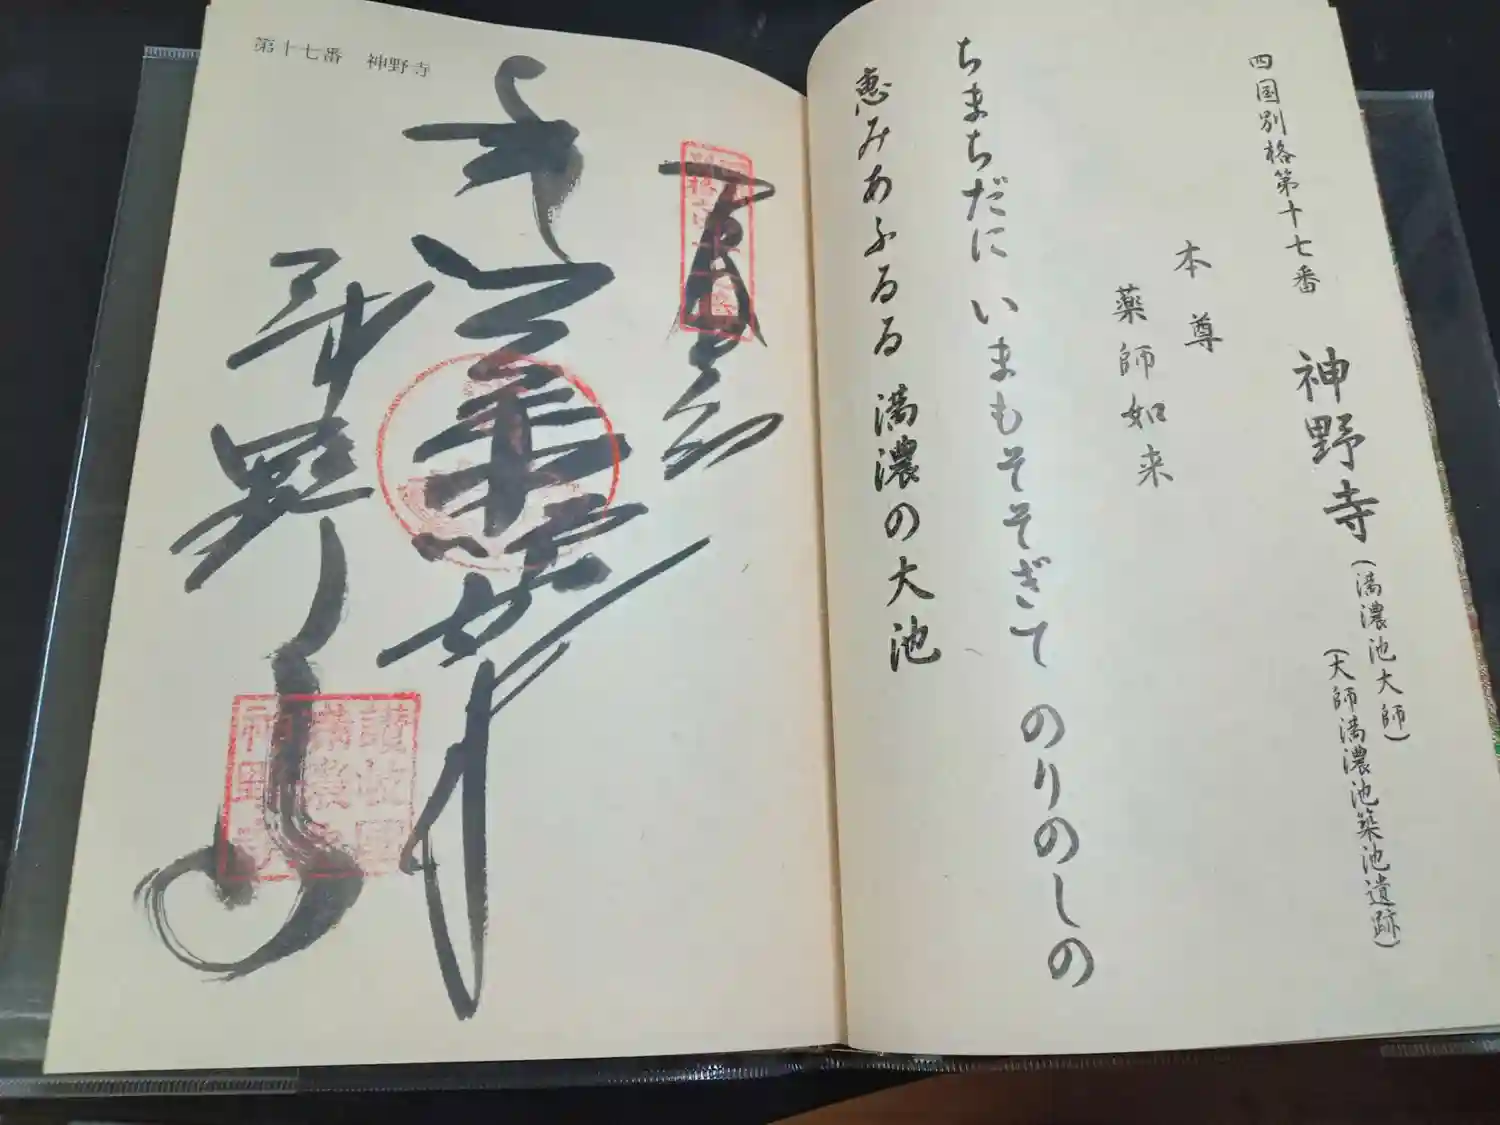 四国別格第十七番
神野寺(満濃池大師)
(大師満濃池築池遺跡)
本尊
薬師如来
ちまちだに いまもそそぎて のりのしの
恵みあふるる 満濃の大池
第十七番 神野寺
奉
薬師
神野寺
讃岐國
満濃池
神野寺